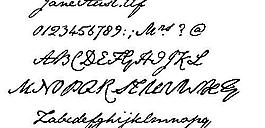 JaneAust.ttf
0123456789:;Mrs?@
ABCDEFGHIJKL
MNOPQRSTUVWXYZ
Zabcdefghijklmnopq